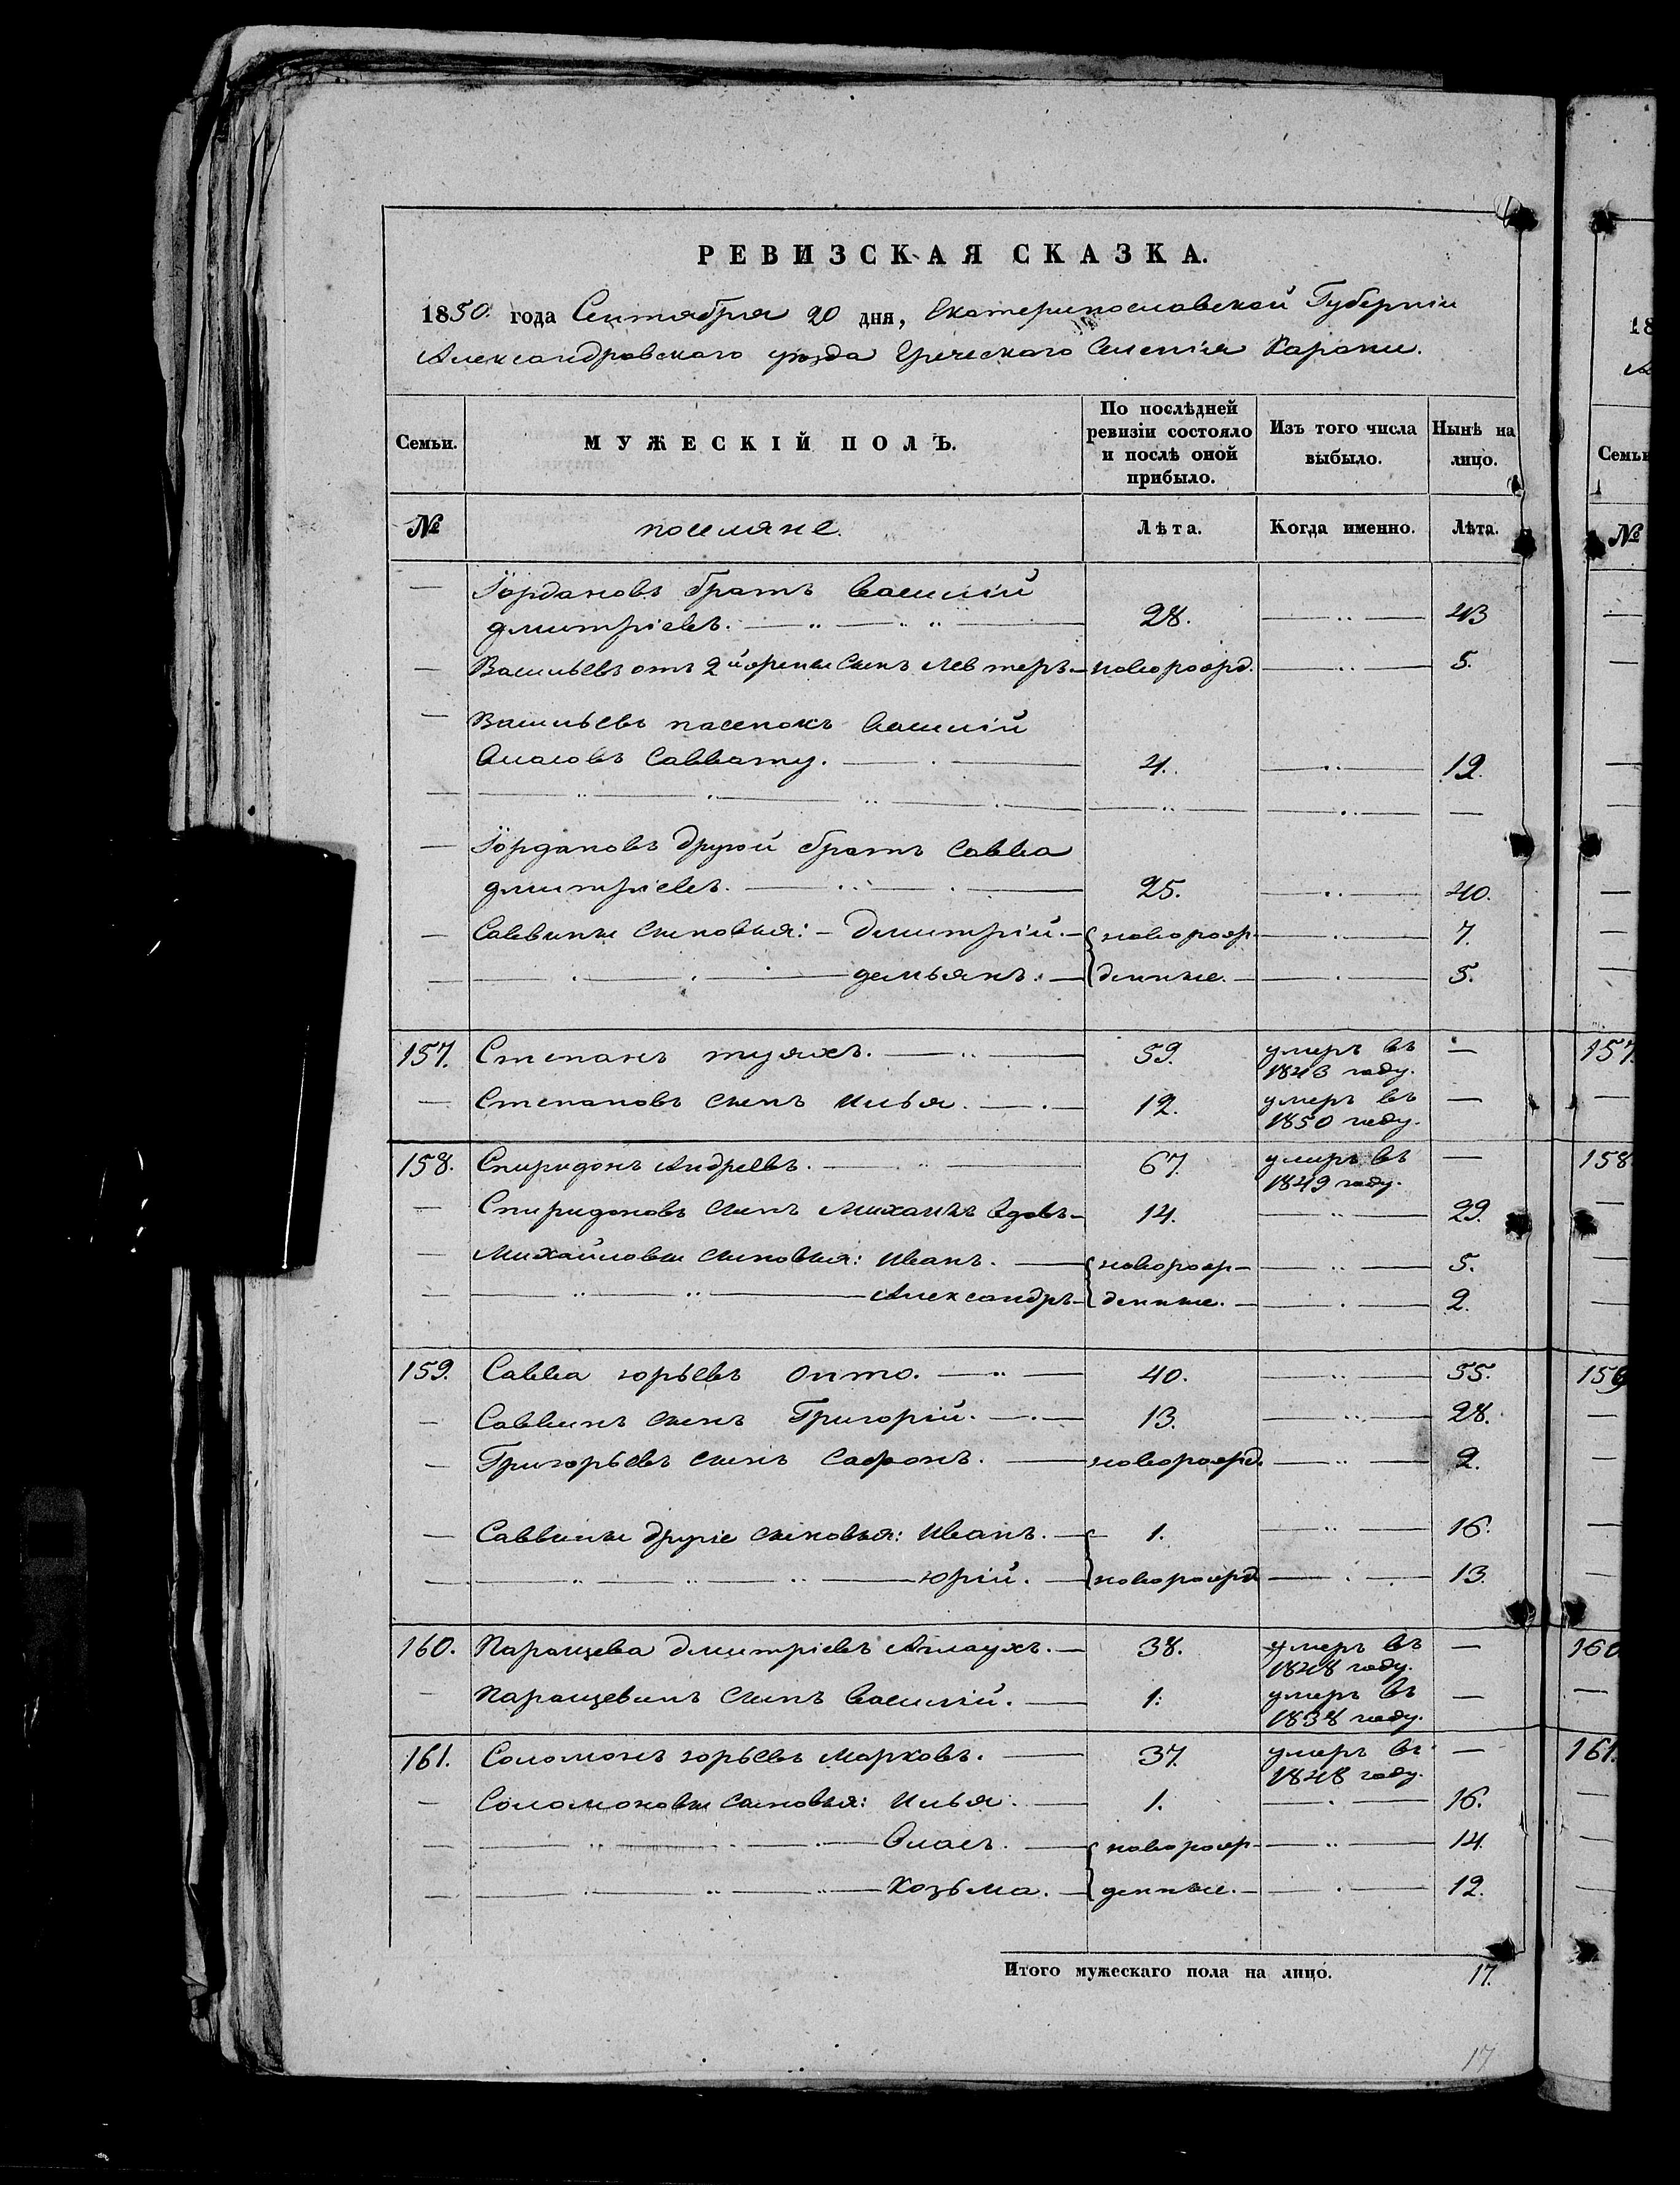 РЕВИЗСКАЯ СКАЗКА.
1850. года Сентября 20 дня, Екатеринославской Губерніи
Александровскаго уѣзда Греческаго Селенія Карани.
Семьи. МУЖЕСКІЙ ПОЛЪ. По послѣдней ревизіи состояло и послѣ оной прибыло. Изъ того числа выбыло. Нынѣ на лицо.
№ поселяне. Лѣта. Когда именно. Лѣта.
— Іордановъ братъ Василій
Дмитріевъ. 28. — 43
— Васильевъ отъ 2й жены сынъ Левтеръ — новорожд. 5.
— Васильевъ пасенокъ Василій
Власовъ Савват. 4. — 12.
— Іордановъ другой братъ Савва
Дмитріевъ. 25. — 40.
— Саввины сыновья: — Дмитрій. — новорож- 7.
— Демьянъ. — денные. — 5.
157. Степанъ Туяхъ. — 59. умеръ въ —
1843 году.
— Степановъ сынъ Илья. — 12. умеръ въ —
1850 году.
158. Спиридонъ Андреевъ. — 67. умеръ въ —
1849 году.
— Спиридоновъ сынъ Михаилъ вдовъ — 14. — 29.
— Михайловы сыновья: Иванъ. — новорож- — 5.
— Александръ — денные. — 2.
159. Савва Юрьевъ Опто. — 40. — 55.
— Саввинъ сынъ Григорій. — 13. — 28.
— Григорьевъ сынъ Сафонъ. — новорожд. — 2.
— Саввины другіе сыновья: Иванъ. — 1. — 16.
— Юрій. — новорожд — 13.
160. Паращева Дмитріевъ — 38. умеръ въ —
1848 году.
— Паращевинъ сынъ Василій. — 1. умеръ въ —
1838 году.
161. Соломонъ Юрьевъ Марковъ. — 37. умеръ въ —
1848 году.
— Соломоновы сыновья: Илья. — 1. — 16.
— Власъ. — новорож- — 14.
— Козьма. — денные. — 12.
Итого мужескаго пола на лицо. 17.
17
18
Семьи
№
157.
158
159
160
161.